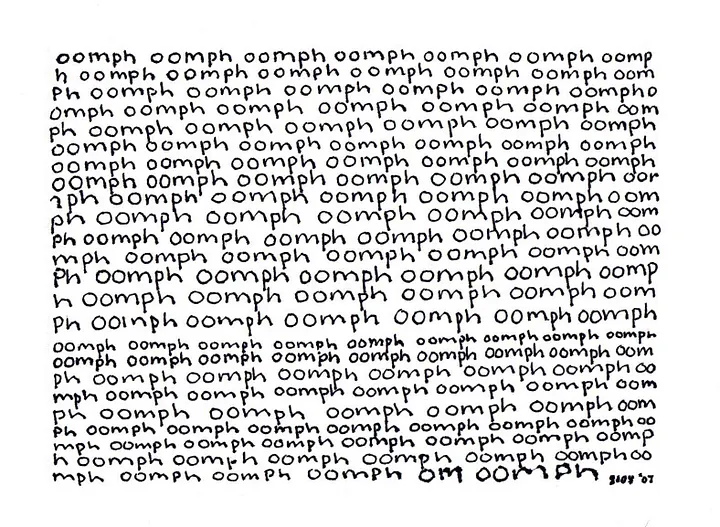 oomph oomph oomph oomph oomph oomph oomp
h oomph oomph oomph oomph oomph oomph oom
ph oomph oomph oomph oomph oomph oompho
omph oomph oomph oomph oomph oomph oom
ph oomph oomph oomph oomph oomph oomph
oomph oomph oomph oomph oomph oomph oomph
oomph oomph oomph oomph oomph oomph oomph
oomph oomph oomph oomph oomph oomph oor
nph oomph oomph oomph oomph oomph oom
ph oomph oomph oomph oomph oomph oom
ph oomph oomph oomph oomph oomph oomph oo
mph oomph oomph oomph oomph oomph oom
ph oomph oomph oomph oomph oomph oomp
h oomph oomph oomph oomph oomph oom
ph oomph oomph oomph oomph oomph oomph
oomph oomph oomph oomph oomph oomph oomph oomph oomph
oomph oomph oomph oomph oomph oomph oomph oomph oom
ph oomph oomph oomph oomph oomph oomph oo
mph oomph oomph oomph oomph oomph oomph oom
ph oomph oomph oomph oomph oomph oom
ph oomph oomph oomph oomph oomph oomph oomph oo
mph oomph oomph oomph oomph oomph oomph oomp
h oomph oomph oomph oomph oomph oomph oo
mph oomph oomph oomph om oomph